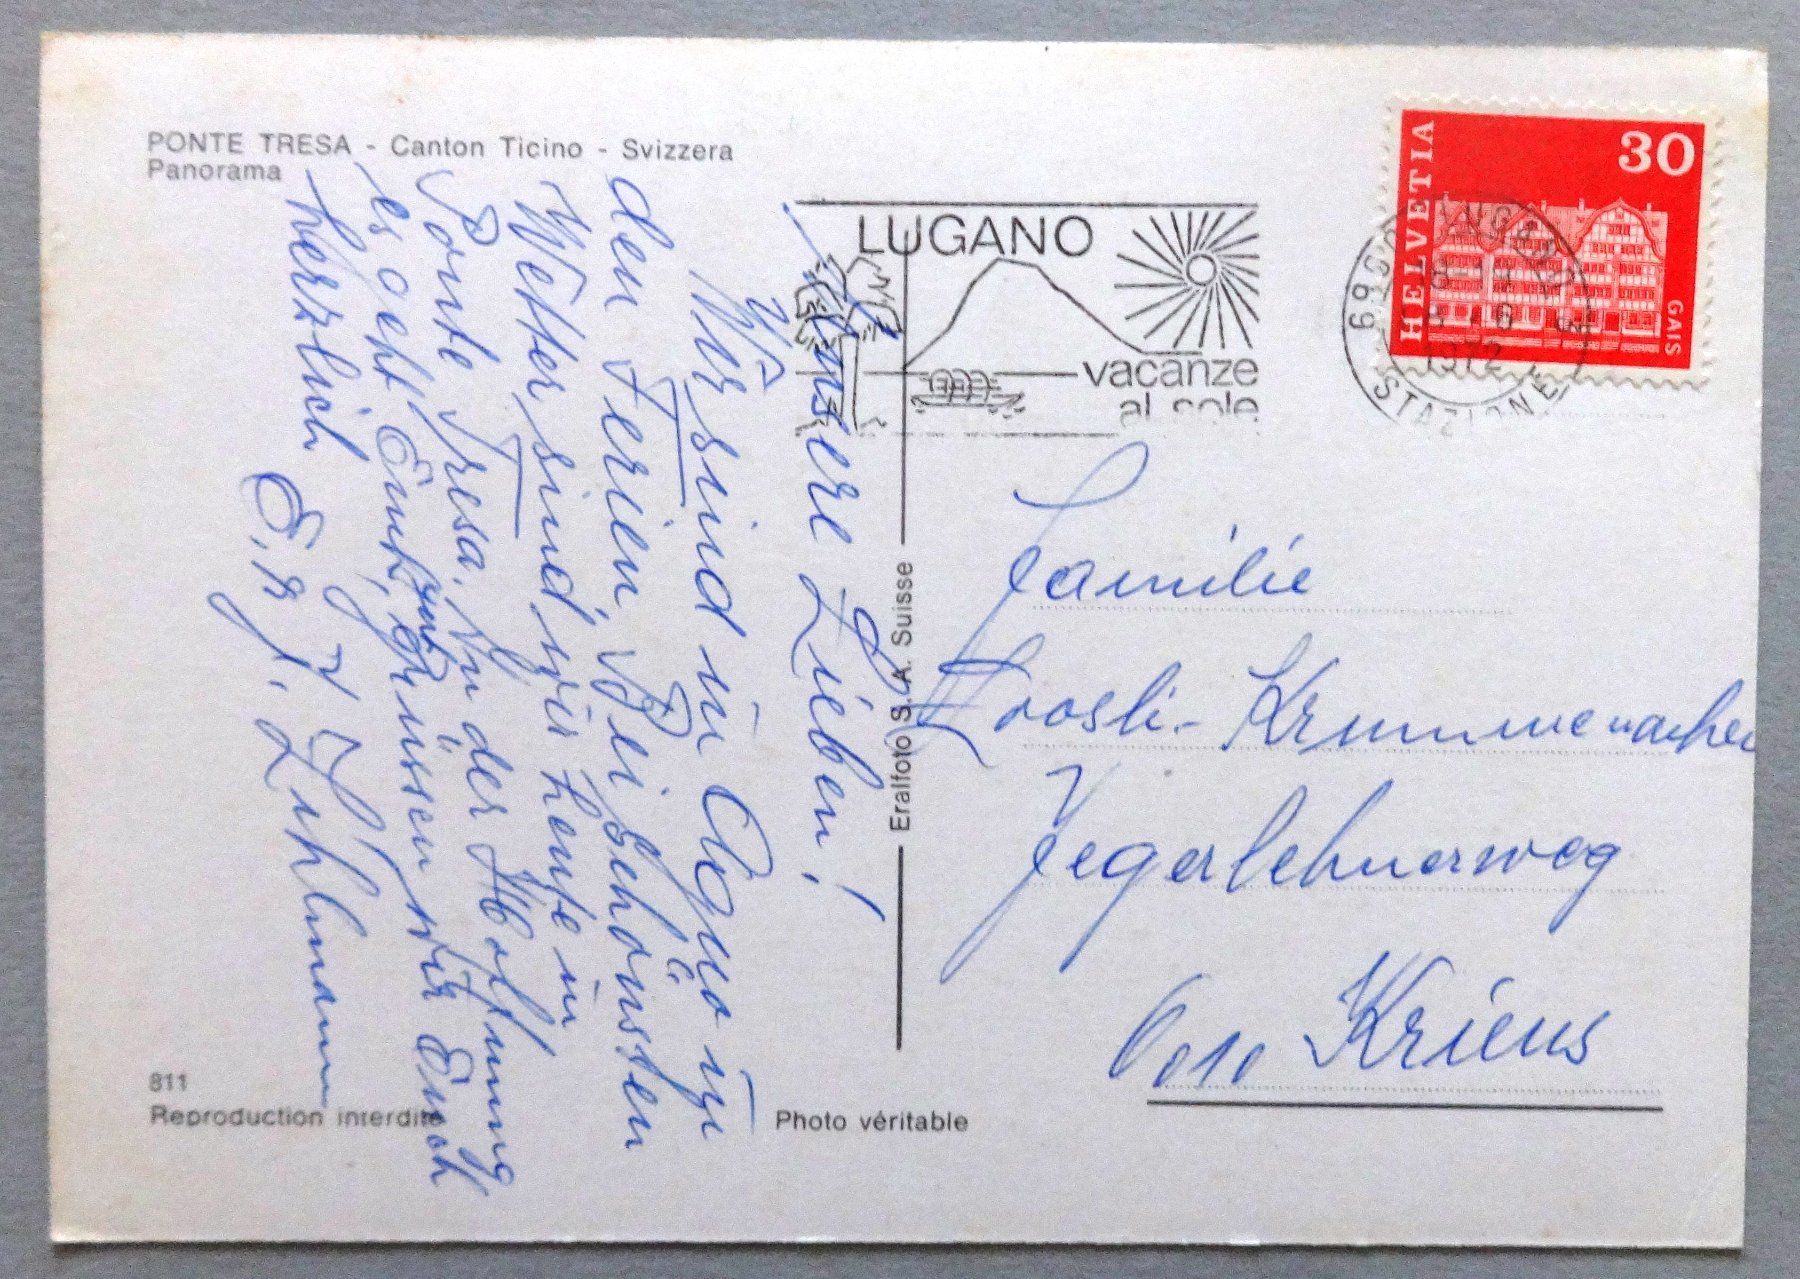 PONTE TRESA - Canton Ticino - Svizzera
Panorama
LUGANO
vacanze
al sole
HELVETIA
30
GAIS
LUGANO
1972
STAZIONE
Unsere Lieben!
Wir sind in Agno in
den Ferien, Bei schönsten
Wetter sind wir heute in
Ponte Tresa. In der Hoffnung
es geht Euch gut, grüssen wir Euch
herzlich
Zihlmann
Eralfoto S. A. Suisse
Familie
Loosli - Krummenacher
Jegerlehnerweg
6010 Kriens
811
Reproduction interdite
Photo véritable